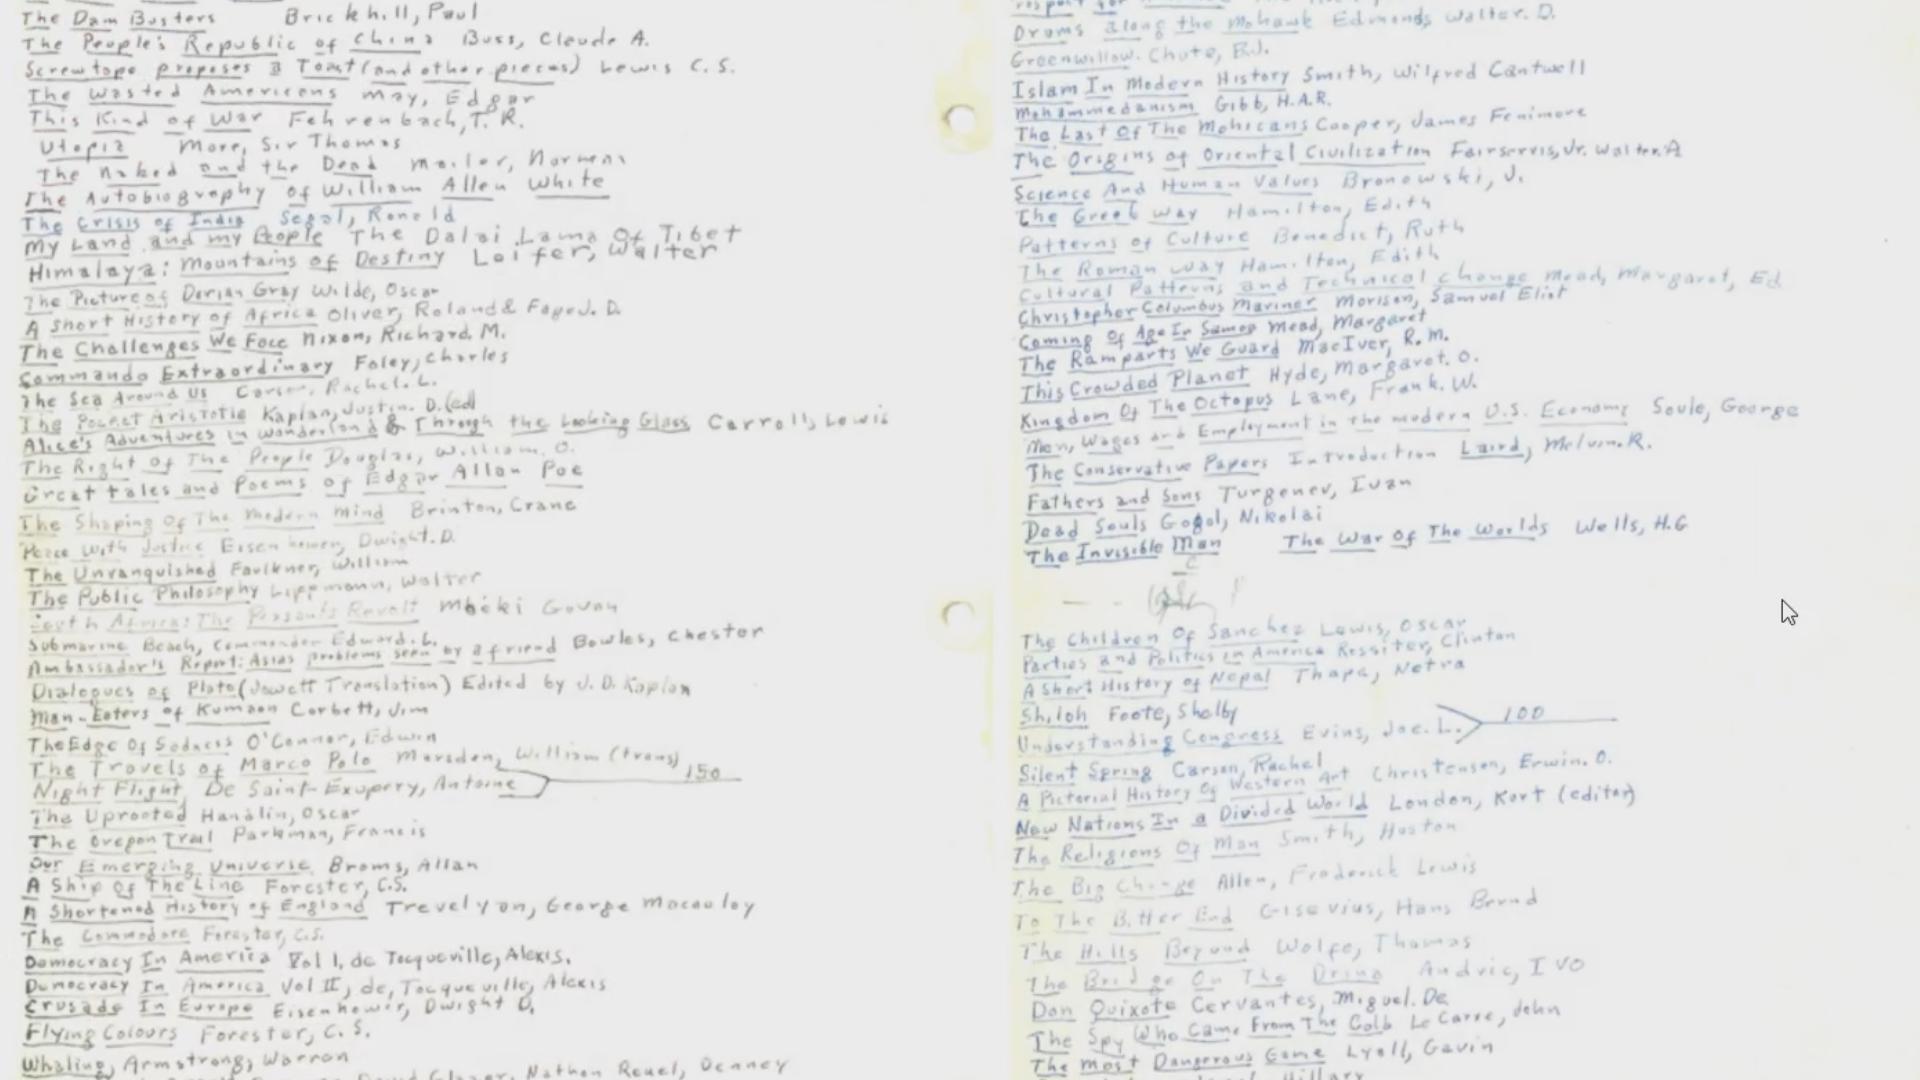 The Dam Busters Brickhill, Paul
The People's Republic of China Buss, Claude A.
Screwtape proposes a Toast (and other pieces) Lewis C.S.
The Wasted Americans May, Edgar
This Kind of War Fehrenbach, T. R.
Utopia More, Sir Thomas
The Naked and the Dead Mailer, Norman
The Autobiography of William Allen White
The Crisis of India Segal, Ronald
My Land and my People The Dalai Lama Of Tibet
Himalaya: Mountains of Destiny Leifer, Walter
The Picture of Dorian Gray Wilde, Oscar
A Short History of Africa Oliver, Roland & Fage J. D.
The Challenges We Face Nixon, Richard. M.
Commando Extraordinary Foley, Charles
The Sea Around Us Carson, Rachel. L.
The Pocket Aristotle Kaplan, Justin. D. (ed)
Alice's Adventures in Wonderland & Through the Looking Glass Carroll, Lewis
The Right Of The People Douglas, William. O.
Great tales and Poems of Edgar Allan Poe
The Shaping Of The Modern Mind Brinton, Crane
Peace With Justice Eisenhower, Dwight. D.
The Unvanquished Faulkner, William
The Public Philosophy Lippmann, Walter
South Africa: The Peasants Revolt Mbeki Govan
Submarine Beach, Commander Edward. L.
Ambassador's Report: Asias problems seen by a friend Bowles, Chester
Dialogues of Plato (Jowett Translation) Edited by J. D. Kaplan
Man-Eaters of Kumaon Corbett, Jim
The Edge Of Sadness O'Connor, Edwin
The Travels of Marco Polo Marsden, William (trans)
Night Flight De Saint-Exupery, Antoine 150
The Uprooted Handlin, Oscar
The Oregon Trail Parkman, Francis
Our Emerging Universe Broms, Allan
A Ship Of The Line Forester, C.S.
A Shortened History of England Trevelyan, George Macaulay
The Commodore Forester, C.S.
Democracy In America Vol I, de Tocqueville, Alexis.
Democracy In America Vol II, de, Tocqueville, Alexis
Crusade In Europe Eisenhower, Dwight D.
Flying Colours Forester, C. S.
Whaling, Armstrong, Warren
David Glazer, Nathan Reuel, Denney
respect for
Drums along the Mohawk Edmonds Walter. D.
Greenwillow. Chute, B.J.
Islam In Modern History Smith, Wilfred Cantwell
Mohammedanism Gibb, H.A.R.
The Last Of The Mohicans Cooper, James Fenimore
The Origins of Oriental Civilization Fairservis, Jr. Walter. A
Science And Human Values Bronowski, J.
The Greek Way Hamilton, Edith
Patterns of Culture Benedict, Ruth
The Roman Way Hamilton, Edith
Cultural Patterns and Technical Change Mead, Margaret, Ed
Christopher Columbus Mariner Morison, Samuel Eliot
Coming Of Age In Samoa Mead, Margaret
The Ramparts We Guard MacIver, R. M.
This Crowded Planet Hyde, Margaret. O.
Kingdom Of The Octopus Lane, Frank. W.
Men, Wages and Employment in the modern U.S. Economy Soule, George
The Conservative Papers Introduction Laird, Melvin. R.
Fathers and Sons Turgenev, Ivan
Dead Souls Gogol, Nikolai
The Invisible Man The War Of The Worlds Wells, H.G
The Children Of Sanchez Lewis, Oscar
Parties and Politics in America Rossiter, Clinton
A Short History of Nepal Thapa, Netra
Shiloh Foote, Shelby
Understanding Congress Evins, Joe. L. 100
Silent Spring Carson, Rachel
A Pictorial History Of Western Art Christensen, Erwin. O.
New Nations In a Divided World London, Kurt (editor)
The Religions Of Man Smith, Huston
The Big Change Allen, Frederick Lewis
To The Bitter End Gisevius, Hans Bernd
The Hills Beyond Wolfe, Thomas
The Bridge On The Drina Andric, IVO
Don Quixote Cervantes, Miguel. De
The Spy Who Came From The Cold Le Carre, John
The Most Dangerous Game Lyall, Gavin
Hillary